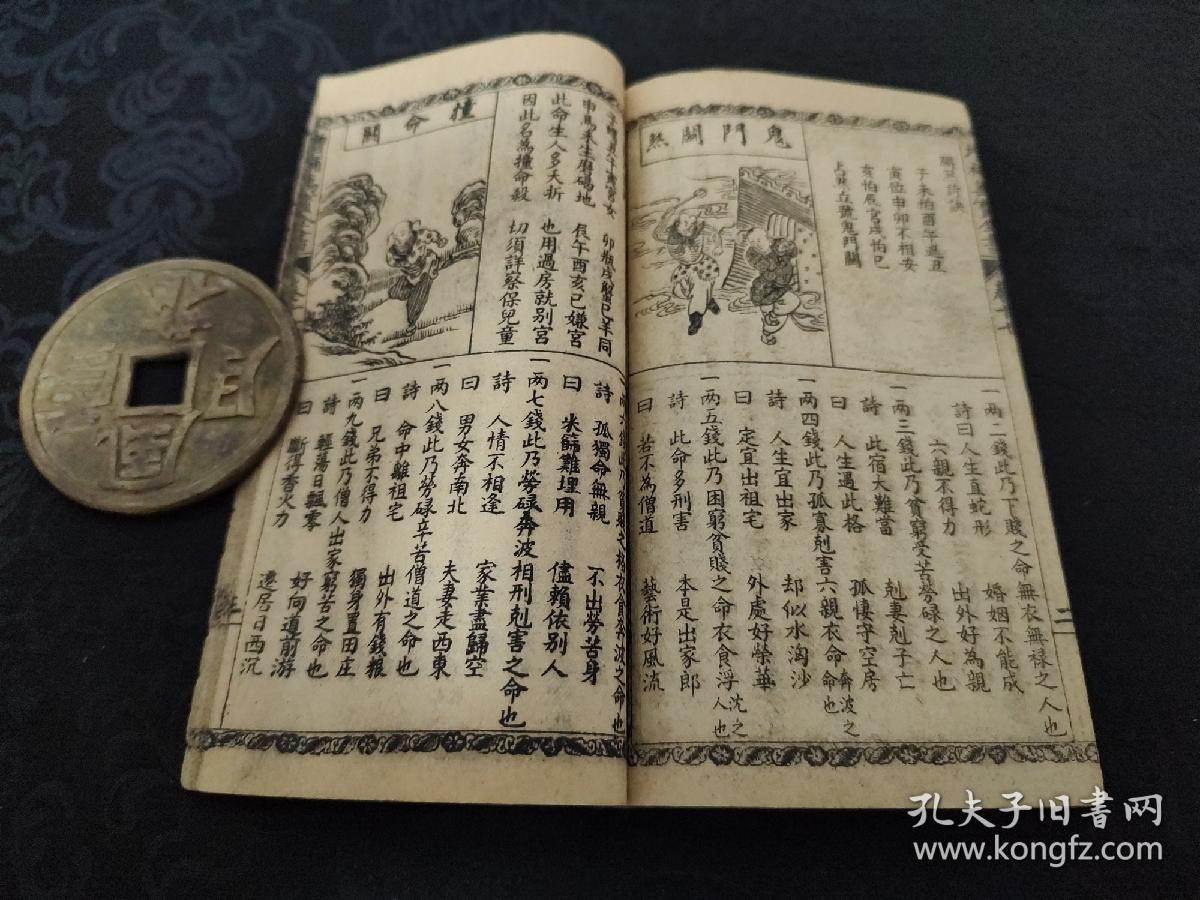 鬼門關煞
關煞詩訣
子未怕酉午退丑
寅位申卯不相安
亥怕辰宮戌怕巳
占來立號鬼門關
一两二錢此乃下賤之命無衣無禄之人也
詩曰人生直蛇形 婚姻不能成
六親不得力 出外好為親
一两三錢此乃貧窮受苦勞碌之人也
詩 此宿大難當 剋妻剋子亡
曰 人生過此格 孤悽守空房
一两四錢此乃孤寡剋害六親衣命奔波之命也
詩 人生宜出家 却似水淘沙
曰 定宜出祖宅 外處好榮華
一两五錢此乃困窮貧賤之命衣食浮沈之人也
詩 此命多刑害 本是出家郎
曰 若不為僧道 藝術好風流
二
撞命關
卯瓶戌蟹巳羊同
申馬来生磨碣地 辰午酉亥巳嫌宮
此命生人多夭折 也用過房就别宮
因此名為撞命殺 切須詳察保兒童
詩 孤獨命無親 不出勞苦身
曰 求師難埋用 儘賴依别人
一两七錢此乃勞碌奔波相刑剋害之命也
詩 人情不相逢 家業盡歸空
曰 男女奔南北 夫妻走西東
一两八錢此乃勞碌辛苦僧道之命也
詩 命中離祖宅 出外有錢粮
曰 兄弟不得力 獨身置田庄
一两九錢此乃僧人出家窮苦之命也
詩 輕蕩日飄零 好向道前游
曰 斷得香火力 遠居日西沉
孔夫子旧書网
www.kongfz.com